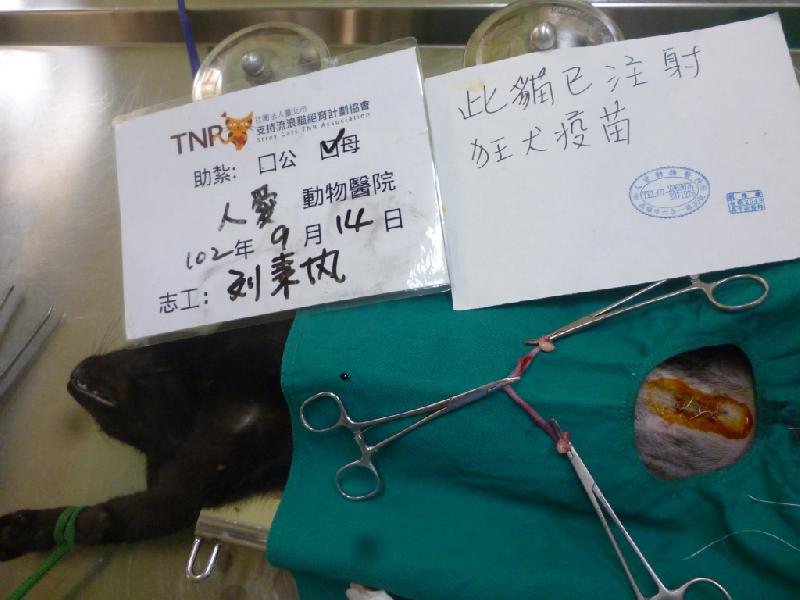 TNR
社團法人臺北市
支持流浪貓絕育計劃協會
Stray Cats TNR Association
助紮: □公 ☑母
人愛 動物醫院
102年 9月 14日
志工:
此貓已注射
狂犬疫苗